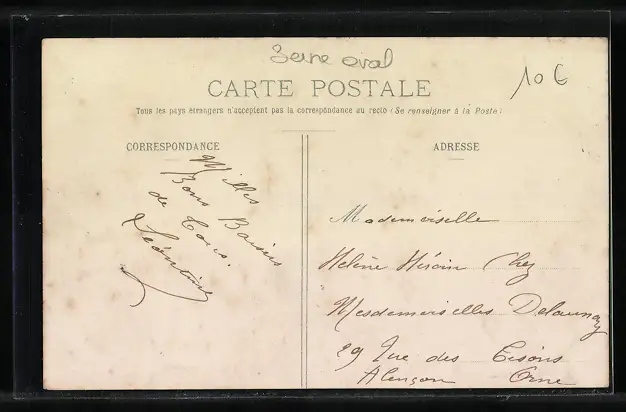 Seine oval
10 €
CARTE POSTALE
Tous les pays étrangers n'acceptent pas la correspondance au recto (Se renseigner à la Poste)
CORRESPONDANCE
ADRESSE
Milles
Bons Baisers
de Tous.
Léontine
Mademoiselle
Hélène Héroin Chez
Mesdemoiselles Delaunay
29 Rue des Tisons
Alençon Orne